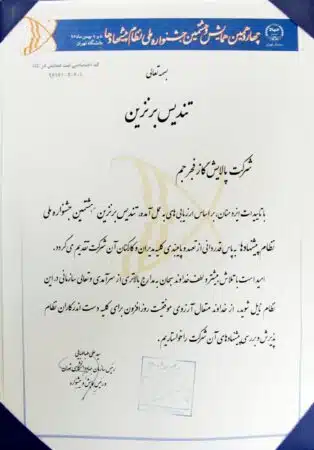 چهاردهمین همایش و هشتمین جشنواره ملی نظام پیشنهادها
دانشگاه تهران
بسمه تعالی
تندیس برنزین
شرکت پالایش گاز فجر جم
با تاییدات ایزد منان، بر اساس ارزیابی های به عمل آمده، تندیس برنزین هشتمین جشنواره ملی
نظام پیشنهادها به پاس قدردانی از تعهد و پایبندی کلیه مدیران و کارکنان آن شرکت تقدیم می گردد.
امید است با تلاش بیشتر و لطف خداوند سبحان به مدارج بالاتری از سرآمدی و تعالی سازمانی در این
نظام نایل شوید. از خداوند متعال آرزوی موفقیت روزافزون برای کلیه دست اندرکاران نظام
پذیرش و بررسی پیشنهادهای آن شرکت را خواستاریم.
رئیس سازمان جهاد دانشگاهی تهران
و رئیس همایش و جشنواره